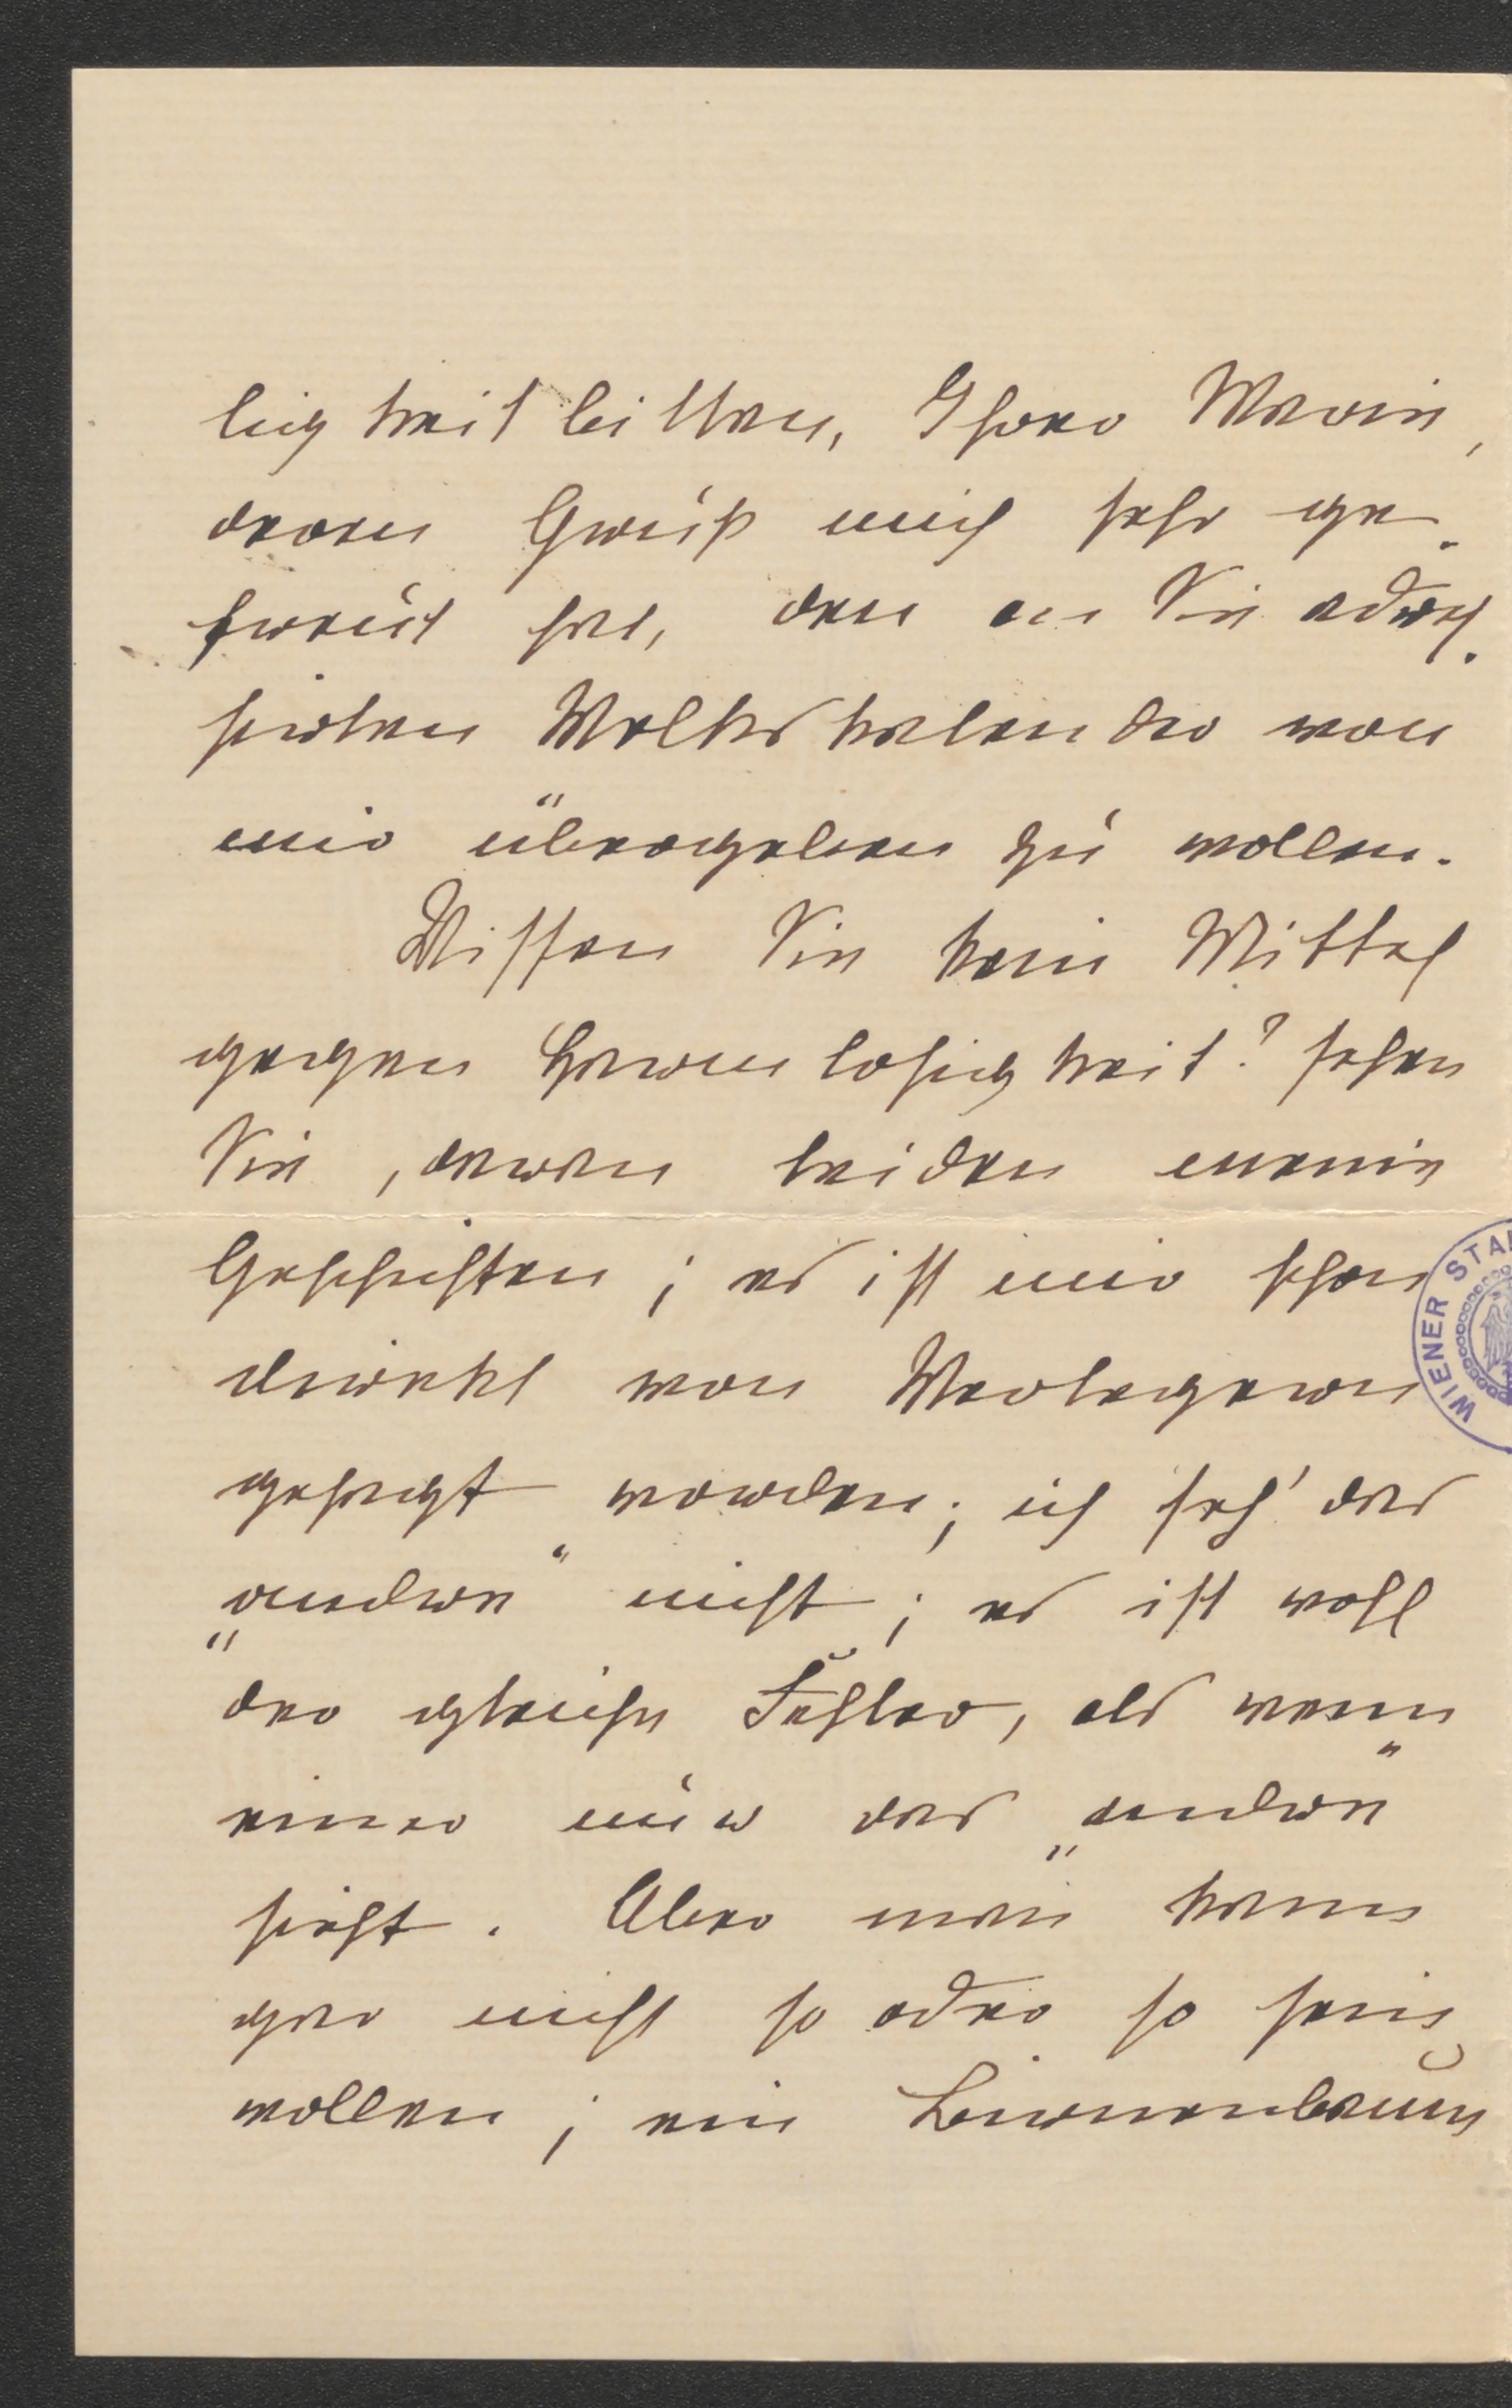 ligkeit bitten, Ihrer Marie,
deren Gruß mich sehr ge-
freut hat, den an Sie adres-
sirten Volkskalender von
mir übergeben zu wollen.
Wissen Sie kein Mittel
gegen Harmlosigkeit? sehen
Sie, daran leiden meine
Geschichten; es ist mir schon
direkt von Verlegern
gesagt worden; ich seh' das
„andre“ nicht; es ist wohl
der gleiche Fehler, als wenn
einer nur das „andre“
sieht. Aber man kann
gar nicht so oder so sein
wollen; ein Birnenbaum
WIENER STA